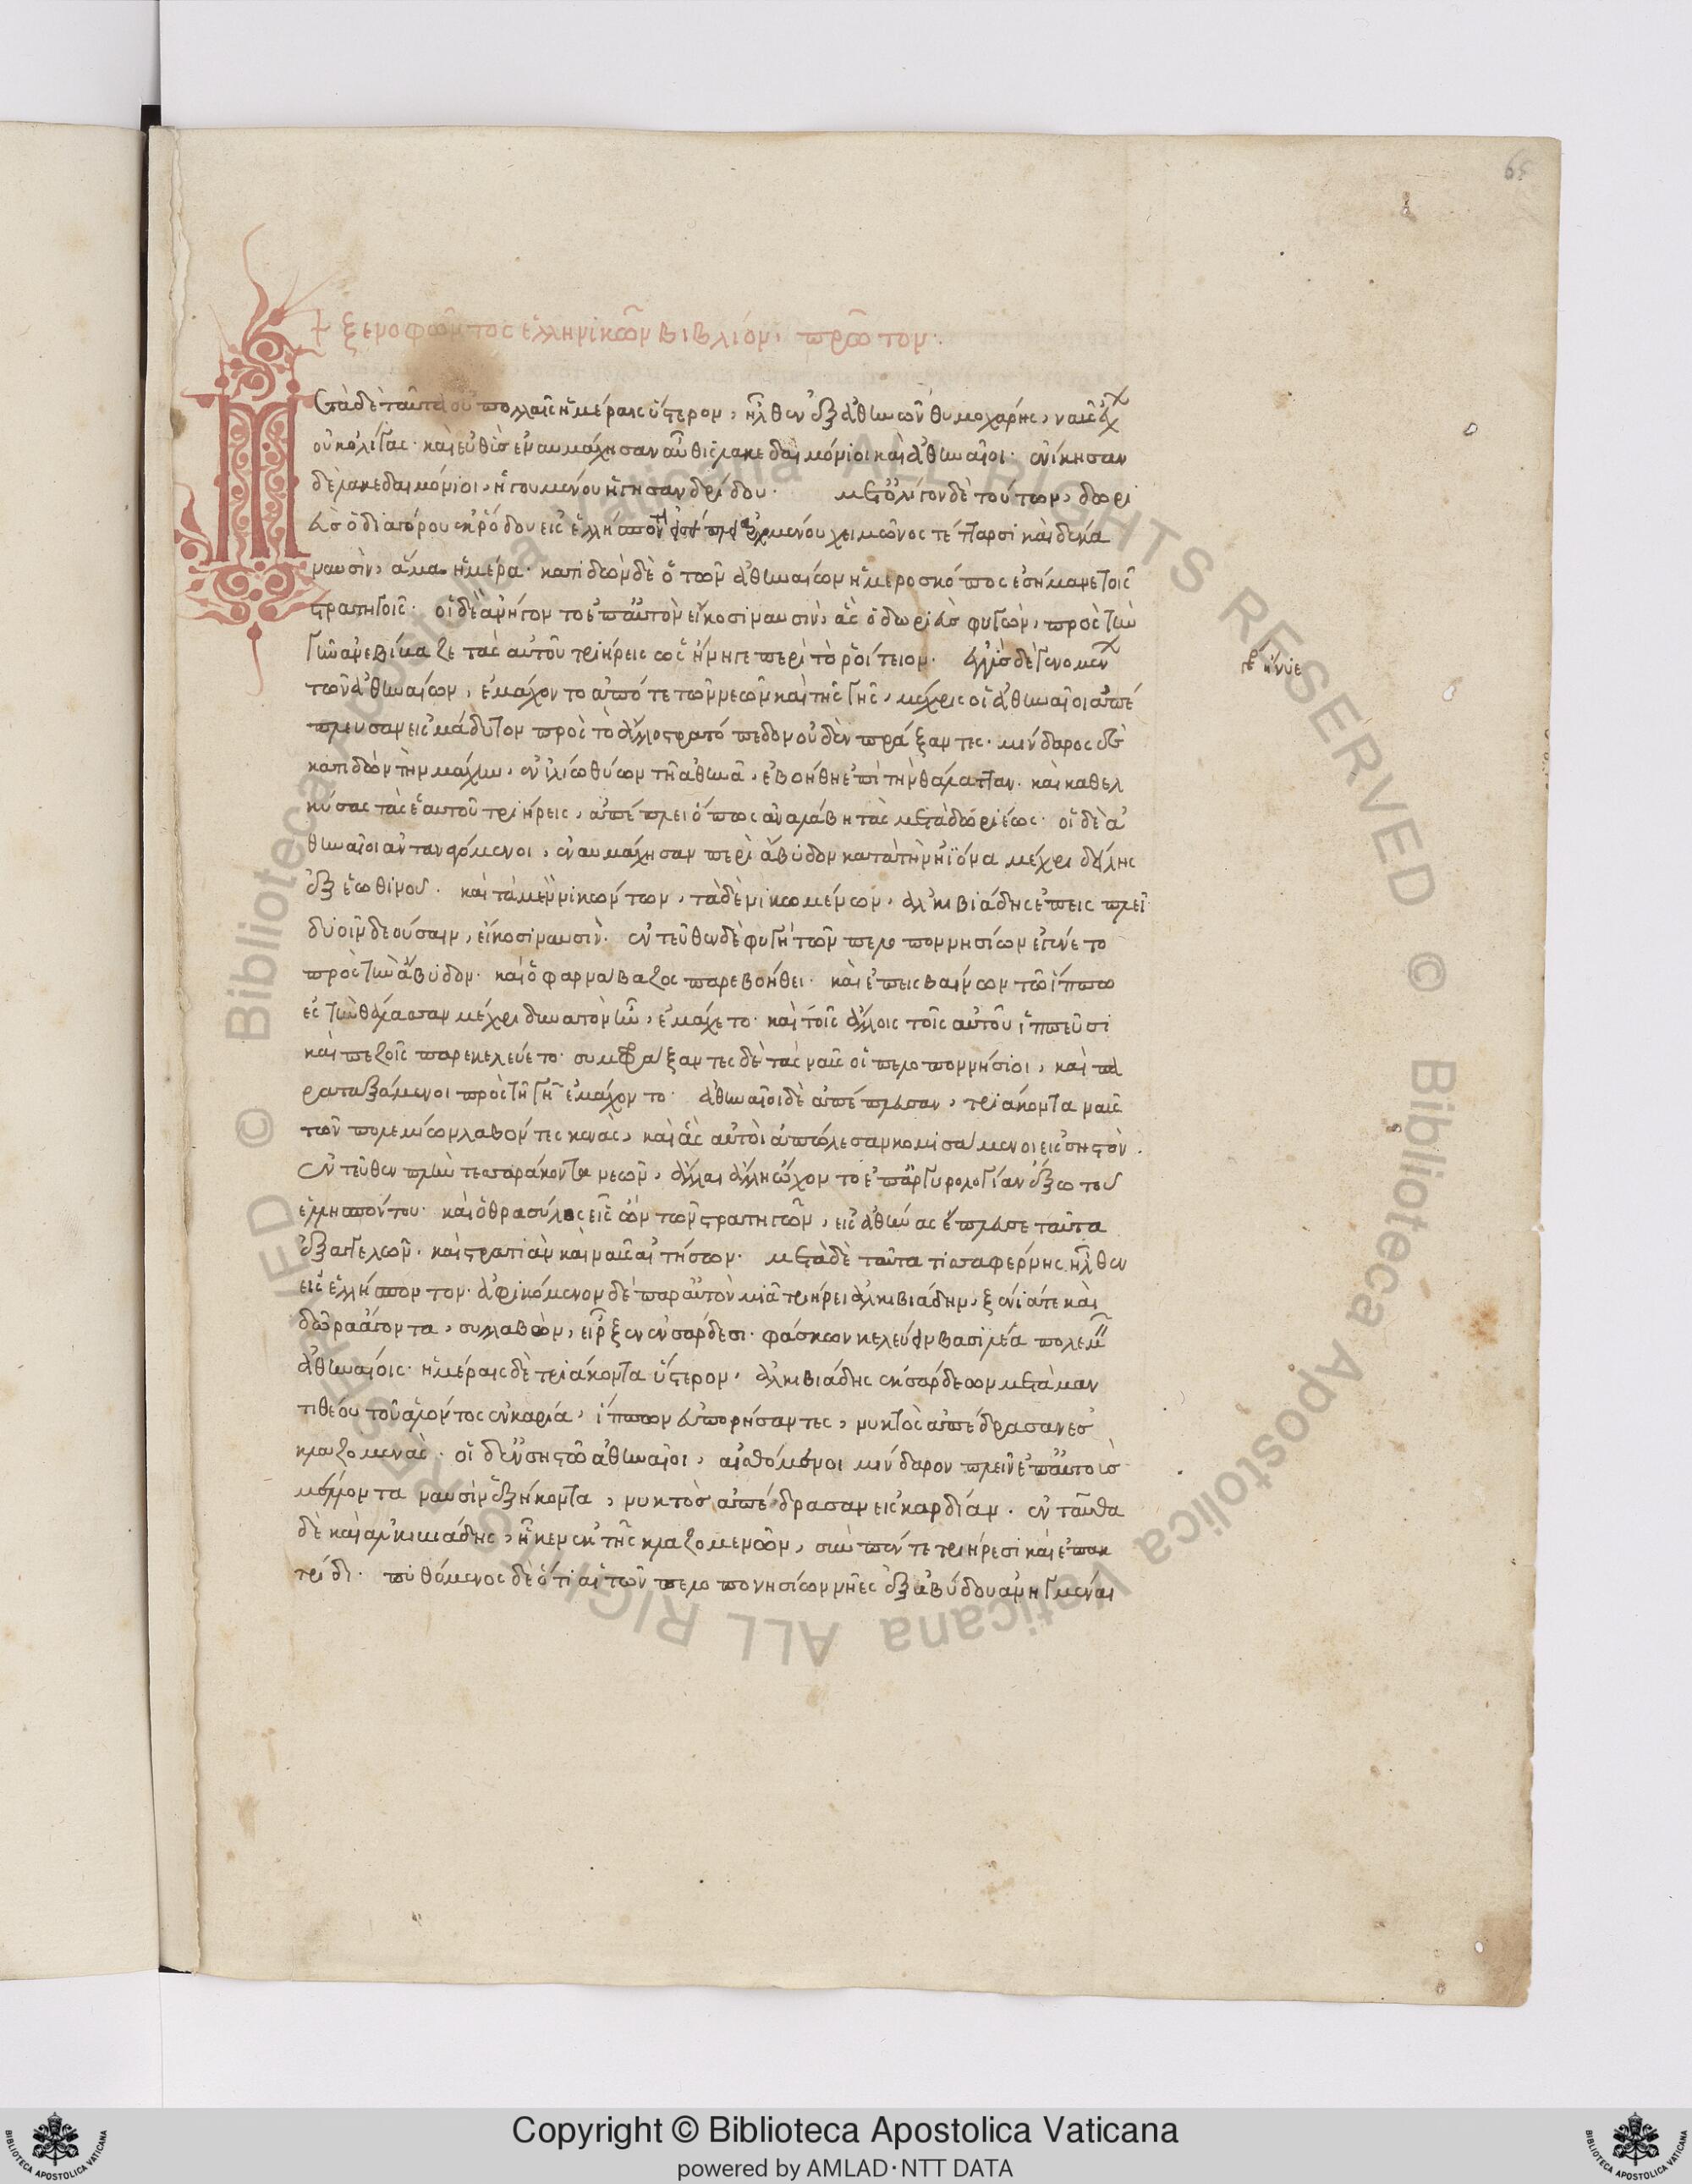 65
+ ξενοφῶντος ἑλληνικῶν βιβλίον, πρῶτον.
Μετὰ δὲ ταῦτα οὐ πολλαῖς ἡμέραις ὕστερον, ἦλθεν ἐξ ἀθηνῶν θυμοχάρης, ναῦς ἔχ
οὐκ ὀλίγας· καὶ εὐθὺς ἐναυμάχησαν αὖθις λακεδαιμόνιοι καὶ ἀθηναῖοι· ἐνίκησαν
δὲ λακεδαιμόνιοι, ἡγουμένου ἡγησανδρίδου. μετ' ὀλίγον δὲ τούτων, δωρι
εὺς ὁ διαγόρου ἐκ ῥόδου εἰς ἑλλήσποντ ἀρχομένου χειμῶνος τέτταρσι καὶ δέκα
ναυσὶν, ἅμα ἡμέρα· κατιδὼν δὲ ὁ τῶν ἀθηναίων ἡμεροσκόπος ἐσήμανε τοῖς
στρατηγοῖς· οἱ δὲ ἀνήγοντο ἐπ' αὐτὸν εἴκοσι ναυσὶν, ἃς ὁ δωριεὺς φυγὼν, πρὸς τὴν
γῆν ἀνεβίβαζε τὰς αὐτοῦ τριήρεις ὡς ἤνυγε περὶ τὸ ῥοίτειον. ἐγγὺς δὲ γενομέν
ἤνυε
τῶν ἀθηναίων, ἐμάχοντο ἀπό τε τῶν νεῶν καὶ τῆς γῆς, μέχρις οἱ ἀθηναῖοι ἀπέ
πλευσαν εἰς μάδυτον πρὸς τὸ ἄλλο στρατόπεδον οὐδὲν πράξαντες. μίνδαρος δὲ
κατιδὼν τὴν μάχην, ἐν ἰλίω θύων τῆ ἀθηνᾶ, ἐβοήθη ἐπὶ τὴν θάλατταν. καὶ καθελ
κύσας τὰς ἑαυτοῦ τριήρεις, ἀπέπλει ὅπως ἀναλάβη τὰς μετὰ δωριέως· οἱ δὲ ἀ
θηναῖοι ἀνταναγόμενοι, ἐναυμάχησαν περὶ ἄβυδον κατὰ τὴν ἠϊόνα μέχρι δείλης
ἐξ ἑωθινοῦ. καὶ τὰ μὲν νικώντων, τὰ δὲ νικωμένων, ἀλκιβιάδης ἐπεισπλεῖ
δυοῖν δεούσαιν, εἴκοσι ναυσίν. ἐντεῦθεν δὲ φυγὴ τῶν πελοποννησίων ἐγένετο
πρὸς τὴν ἄβυδον. καὶ ὁ φαρνάβαζος παρεβοήθει. καὶ ἐπεισβαίνων τῶ ἵππω
ἐς τὴν θάλασσαν μέχρι δυνατὸν ἦν, ἐμάχετο· καὶ τοῖς ἄλλοις τοῖς αὐτοῦ ἱππεῦσι
καὶ πεζοῖς παρεκελεύετο· συμφράξαντες δὲ τὰς ναῦς οἱ πελοποννήσιοι, καὶ πα
ραταξάμενοι πρὸς τῆ γῆ ἐμάχοντο· ἀθηναῖοι δὲ ἀπέπλευσαν, τριάκοντα ναῦς
τῶν πολεμίων λαβόντες κενὰς, καὶ ἃς αὐτοὶ ἀπώλεσαν κομισάμενοι εἰς σηστόν.
ἐντεῦθεν πλὴν τεσσαράκοντα νεῶν, ἄλλαι ἄλλη ὤχοντο ἐπ' ἀργυρολογίαν ἔξω τοῦ
ἑλλησπόντου· καὶ ὁ θρασύλος εἷς ὢν τῶν στρατηγῶν, εἰς ἀθήνας ἔπλευσε ταῦτα
ἐξαγγελῶν. καὶ στρατιὰν καὶ ναῦς αἰτήσων. μετὰ δὲ ταῦτα τισσαφέρνης ἦλθεν
εἰς ἑλλήσποντον. ἀφικόμενον δὲ παρ' αὐτὸν μιᾶ τριήρει ἀλκιβιάδην, ξένιά τε καὶ
δῶρα ἄγοντα, συλλαβὼν, εἷρξεν ἐν σάρδεσι. φάσκων κελεύειν βασιλέα πολεμ
ἀθηναίοις. ἡμέραις δὲ τριάκοντα ὕστερον, ἀλκιβιάδης ἐκ σάρδεων μετὰ μαν
τιθέου τοῦ ἁλόντος ἐν καρία, ἵππων εὐπορήσαντες, νυκτὸς ἀπέδρασαν ἐς
κλαζομενάς. οἱ δ' ἐν σηστῶ ἀθηναῖοι, αἰσθόμενοι μίνδαρον πλεῖν ἐπ' αὐτοὺς
μέλλοντα ναυσὶν ἑξήκοντα, νυκτὸς ἀπέδρασαν εἰς καρδίαν. ἐνταῦθα
δὲ καὶ ἀλκιβιάδης, ἧκεν ἐκ τῆς κλαζομενῶν, σὺν πέντε τριήρεσι καὶ ἐπακ
τρίδι. πυθόμενος δὲ ὅτι αἱ τῶν πελοπονησίων νῆες ἐξ ἀβύδου ἀνηγμέναι
Copyright © Biblioteca Apostolica Vaticana
powered by AMLAD·NTT DATA